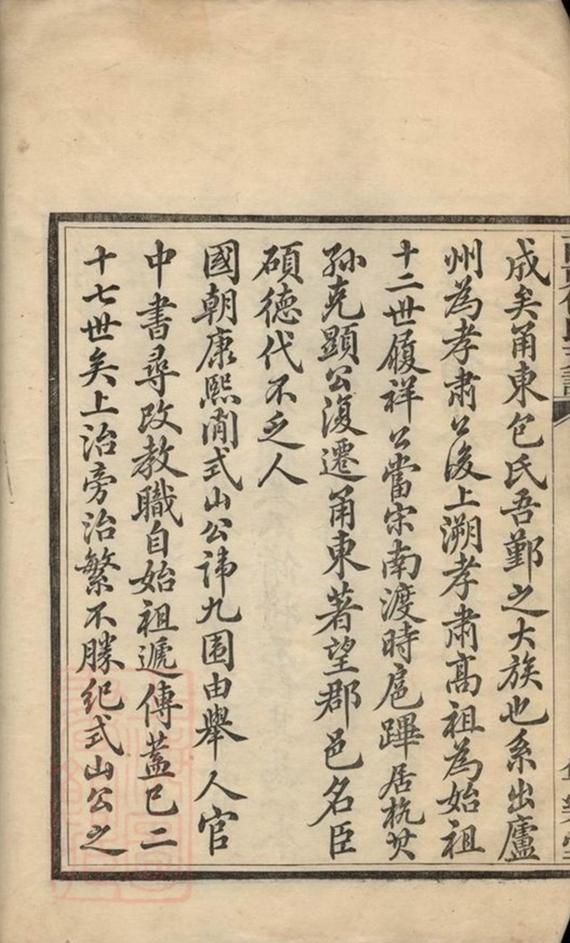 成矣甬東包氏吾鄞之大族也系出廬
州為孝肅公後上溯孝肅高祖為始祖
十二世履祥公當宋南渡時扈蹕居杭其
孫克顯公復遷甬東著望郡邑名臣
碩德代不乏人
國朝康熙閒式山公諱九圍由舉人官
中書尋改教職自始祖遞傳蓋已二
十七世矣上治旁治繁不勝紀式山公之